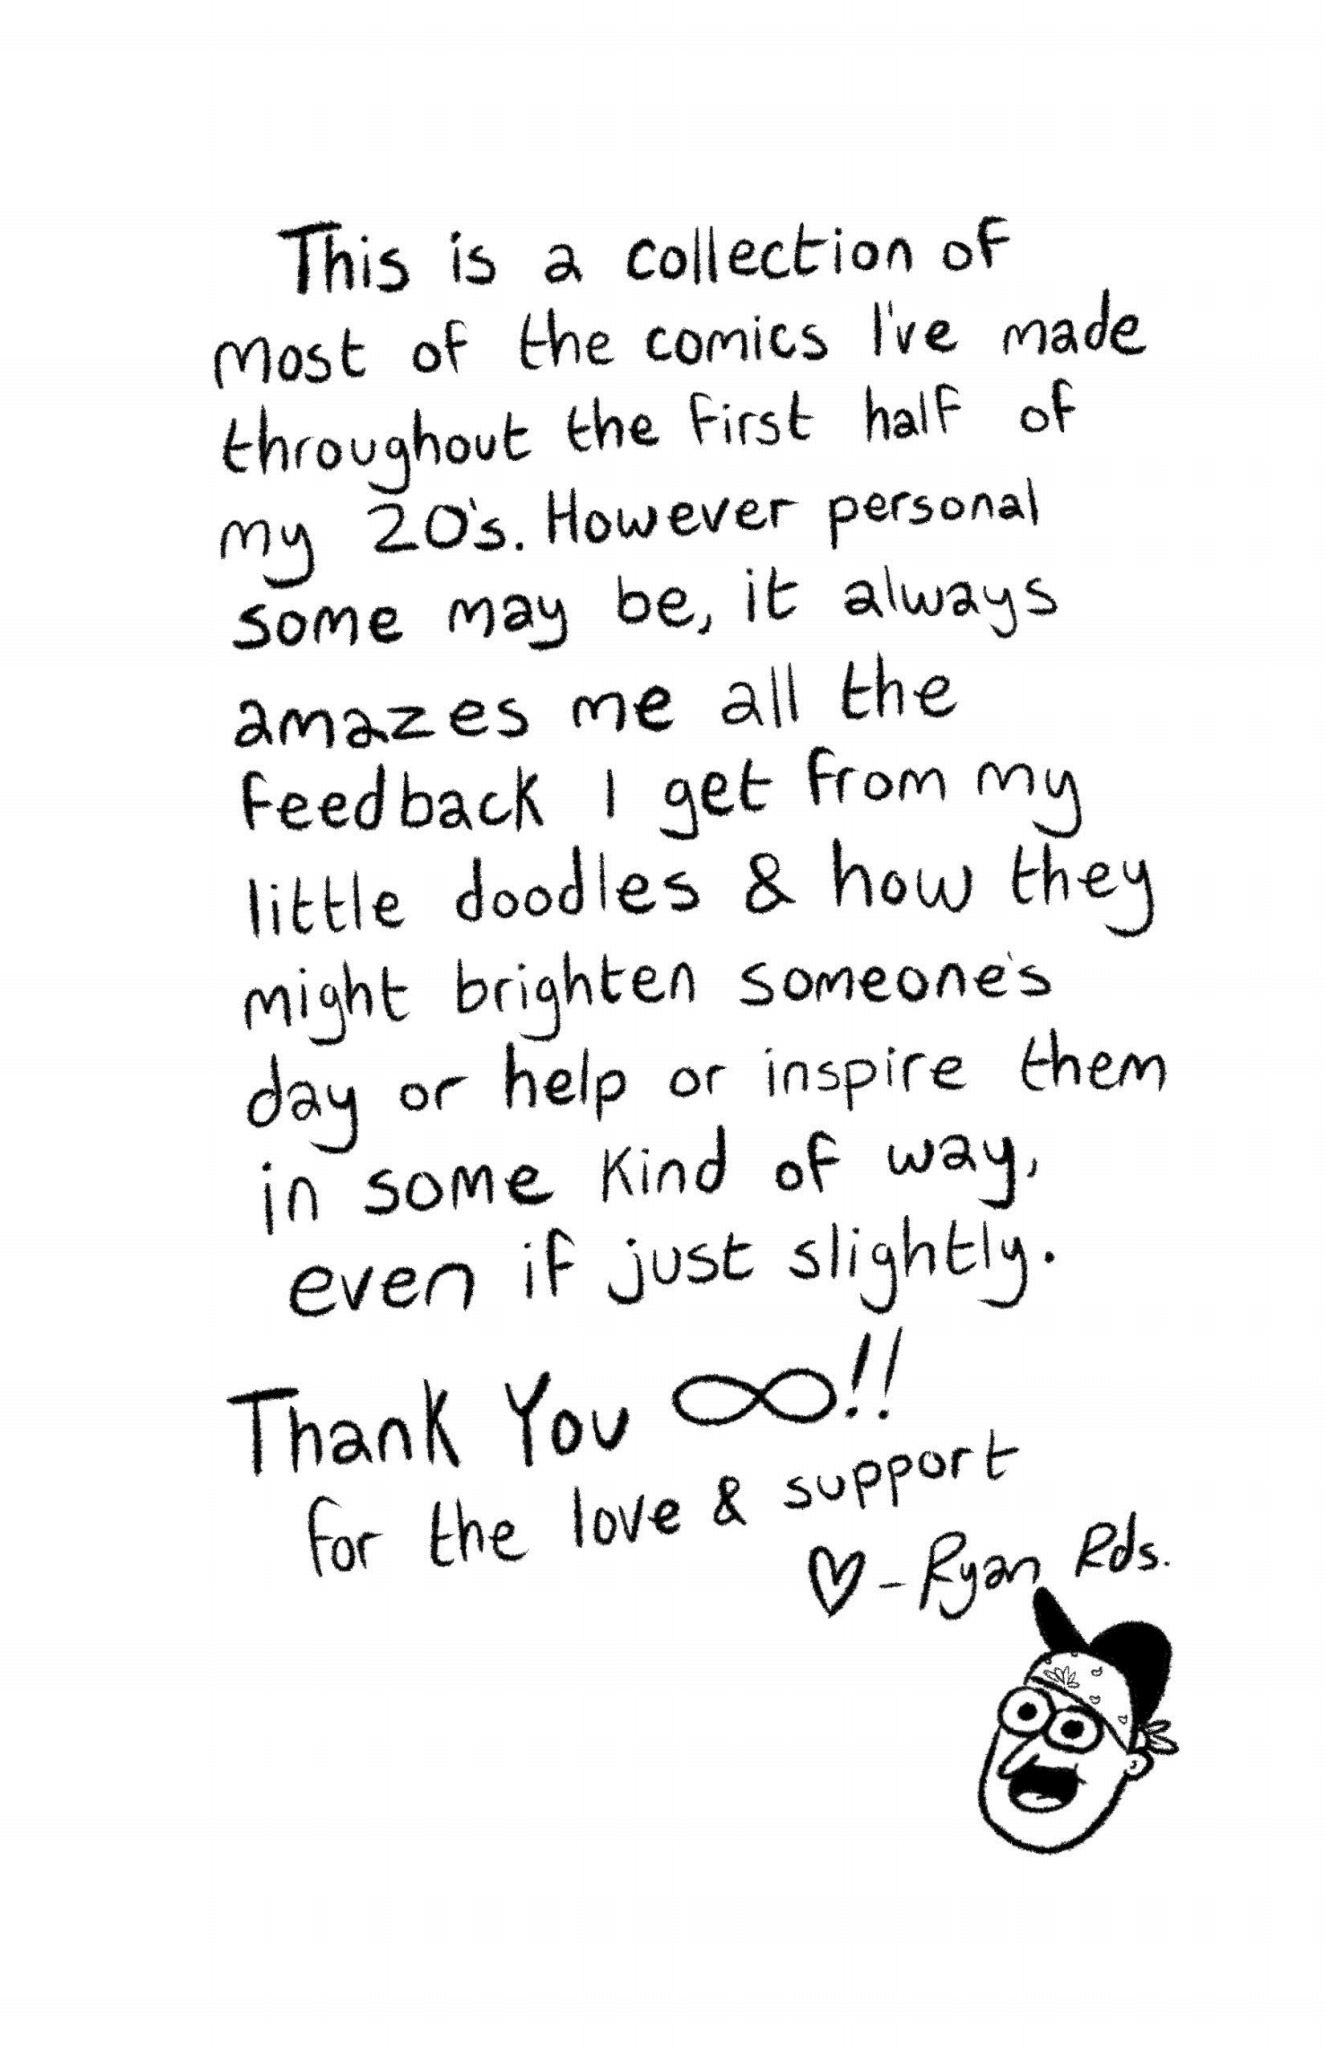 This is a collection of
most of the comics I've made
throughout the first half of
my 20's. However personal
some may be, it always
amazes me all the
feedback I get from my
little doodles & how they
might brighten someone's
day or help or inspire them
in some kind of way,
even if just slightly.
Thank You ∞!!
for the love & support
♡ - Ryan Rds.